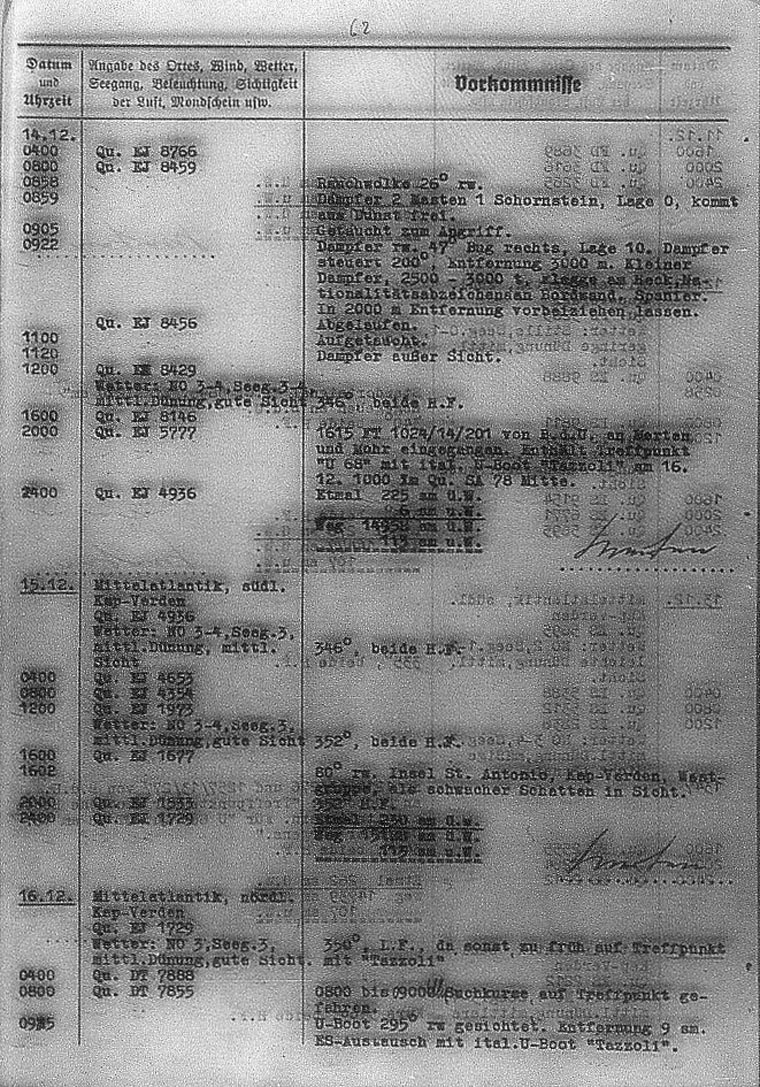 62
Datum
und
Uhrzeit
Angabe des Ortes, Wind, Wetter,
Seegang, Beleuchtung, Sichtigkeit
der Luft, Mondschein usw.
Vorkommnisse
14.12.
0400 Qu. EJ 8766
0800 Qu. EJ 8459
0858 Rauchwolke 26° rw.
0859 Dampfer 2 Masten 1 Schornstein, Lage 0, kommt
aus Dunst frei.
0905 Getaucht zum Angriff.
0922 Dampfer rw. 47° Bug rechts, Lage 10. Dampfer
steuert 200°, Entfernung 3000 m. Kleiner
Dampfer, 2500 - 3000 t, Flagge am Heck, Na-
tionalitätsabzeichen an Bordwand, Spanier.
In 2000 m Entfernung vorbeiziehen lassen.
Qu. EJ 8456 Abgelaufen.
1100 Aufgetaucht.
1120 Dampfer außer Sicht.
1200 Qu. EJ 8429
Wetter: NO 3-4, Seeg. 3-4,
mittl.Dünung,gute Sicht 346°, beide H.F.
1600 Qu. EJ 8146
2000 Qu. EJ 5777 1615 FT 1024/14/201 von B.d.U. an Merten
und Mohr eingegangen. Enthält Treffpunkt
"U 68" mit ital. U-Boot "Tazzoli" am 16.
12. 1000 Qu. SA 78 Mitte.
2400 Qu. EJ 4936 Etmal 225 sm ü.W.
6 sm u.W.
Weg sm ü.W.
113 sm u.W.
15.12. Mittelatlantik, südl.
Kap-Verden
Qu. EJ 4936
Wetter: NO 3-4,Seeg.3,
mittl.Dünung, mittl. 346°, beide H.F.
Sicht
0400 Qu. EJ 4653
0800 Qu. EJ 4354
1200 Qu. EJ 1973
Wetter: NO 3-4,Seeg.3,
mittl.Dünung,gute Sicht 352°, beide H.F.
1600 Qu. EJ 1677
1602 80° rw. Insel St. Antonio, Kap-Verden, West-
gruppe, als schwacher Schatten in Sicht.
2000 Qu. EJ 1333 352° H.F.
2400 Qu. EJ 1729 Etmal 230 sm ü.W.
Weg sm ü.W.
113 sm u.W.
16.12. Mittelatlantik, nördl.
Kap-Verden
Qu. EJ 1729
Wetter: NO 3,Seeg.3, 350°, L.F., da sonst zu früh auf Treffpunkt
mittl.Dünung,gute Sicht. mit "Tazzoli"
0400 Qu. DT 7888
0800 Qu. DT 7855 0800 bis 0900 Suchkurse auf Treffpunkt ge-
fahren.
0925 U-Boot 295° rw gesichtet. Entfernung 9 sm.
ES-Austausch mit ital.U-Boot "Tazzoli".